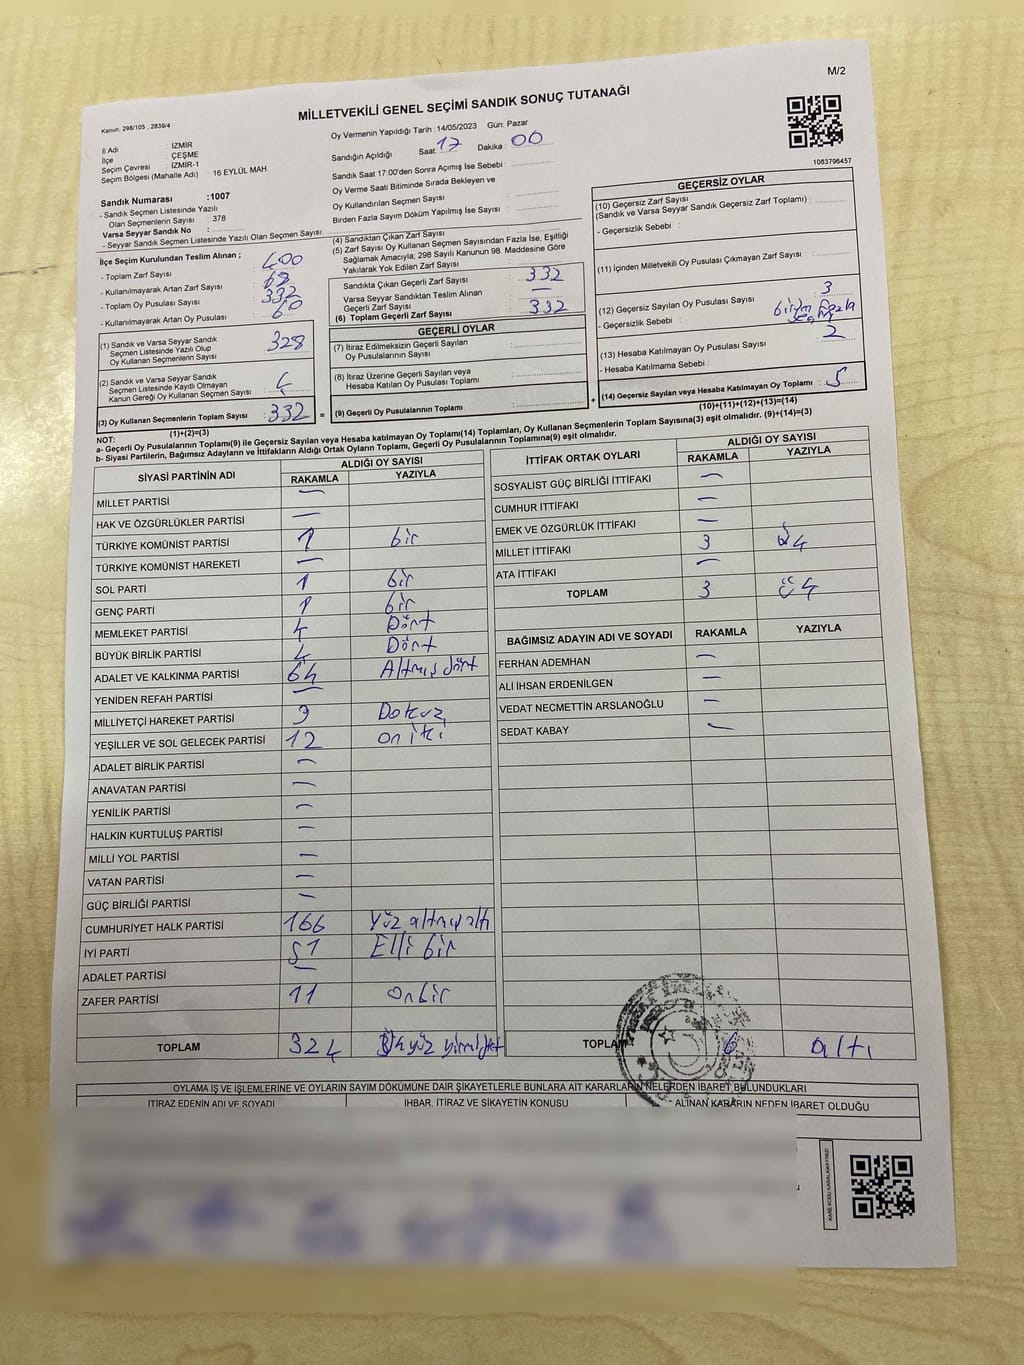 M/2
MİLLETVEKİLİ GENEL SEÇİMİ SANDIK SONUÇ TUTANAĞI
Kanun, 298/105 , 2839/4
İl Adı : İZMİR
İlçe : ÇEŞME
Seçim Çevresi : İZMİR-1
Seçim Bölgesi (Mahalle Adı) : 16 EYLÜL MAH.
Sandık Numarası :1007
- Sandık Seçmen Listesinde Yazılı
Olan Seçmenlerin Sayısı : 378
Varsa Seyyar Sandık No :
- Seyyar Sandık Seçmen Listesinde Yazılı Olan Seçmen Sayısı:
Oy Vermenin Yapıldığı Tarih :14/05/2023 Gün: Pazar
Sandığın Açıldığı Saat 17 Dakika : 00
Sandık Saat 17:00'den Sonra Açımış İse Sebebi :
Oy Verme Saati Bitiminde Sırada Bekleyen ve
Oy Kullandırılan Seçmen Sayısı :
Birden Fazla Sayım Döküm Yapılmış İse Sayısı :
1083796457
İlçe Seçim Kurulundan Teslim Alınan ;
- Toplam Zarf Sayısı : 400
- Kullanılmayarak Artan Zarf Sayısı : 68
- Toplam Oy Pusulası Sayısı : 332
- Kullanılmayarak Artan Oy Pusulası :
(1) Sandık ve Varsa Seyyar Sandık
Seçmen Listesinde Yazılı Olup
Oy Kullanan Seçmenlerin Sayısı : 328
(2) Sandık ve Varsa Seyyar Sandık
Seçmen Listesinde Kayıtlı Olmayan
Kanun Gereği Oy Kullanan Seçmen Sayısı : 4
(3) Oy Kullanan Seçmenlerin Toplam Sayısı : 332 =
(1)+(2)=(3)
(4) Sandıktan Çıkan Zarf Sayısı :
(5) Zarf Sayısı Oy Kullanan Seçmen Sayısından Fazla İse, Eşitliği
Sağlamak Amacıyla; 298 Sayılı Kanunun 98. Maddesine Göre
Yakılarak Yok Edilen Zarf Sayısı :
Sandıkta Çıkan Geçerli Zarf Sayısı : 332
Varsa Seyyar Sandıktan Teslim Alınan
Geçerli Zarf Sayısı : —
(6) Toplam Geçerli Zarf Sayısı : 332
GEÇERLİ OYLAR
(7) İtiraz Edilmeksizin Geçerli Sayılan
Oy Pusulalarının Sayısı :
(8) İtiraz Üzerine Geçerli Sayılan veya
Hesaba Katılan Oy Pusulası Toplamı :
(9) Geçerli Oy Pusulalarının Toplamı : +
GEÇERSİZ OYLAR
(10) Geçersiz Zarf Sayısı
(Sandık ve Varsa Seyyar Sandık Geçersiz Zarf Toplamı) :
- Geçersizlik Sebebi :
(11) İçinden Milletvekili Oy Pusulası Çıkmayan Zarf Sayısı :
(12) Geçersiz Sayılan Oy Pusulası Sayısı : 3
- Geçersizlik Sebebi : fazla
(13) Hesaba Katılmayan Oy Pusulası Sayısı : 2
- Hesaba Katılmama Sebebi :
(14) Geçersiz Sayılan veya Hesaba Katılmayan Oy Toplamı : 5
(10)+(11)+(12)+(13)=(14)
NOT:
a- Geçerli Oy Pusulalarının Toplamı(9) ile Geçersiz Sayılan veya Hesaba katılmayan Oy Toplam(14) Toplamları, Oy Kullanan Seçmenlerin Toplam Sayısına(3) eşit olmalıdır. (9)+(14)=(3)
b- Siyasi Partilerin, Bağımsız Adayların ve İttifakların Aldığı Ortak Oyların Toplamı, Geçerli Oy Pusulalarının Toplamına(9) eşit olmalıdır.
SİYASİ PARTİNİN ADI ALDIĞI OY SAYISI
RAKAMLA YAZIYLA
MİLLET PARTİSİ —
HAK VE ÖZGÜRLÜKLER PARTİSİ —
TÜRKİYE KOMÜNİST PARTİSİ 1 bir
TÜRKİYE KOMÜNİST HAREKETİ —
SOL PARTİ 1 bir
GENÇ PARTİ 1 bir
MEMLEKET PARTİSİ 4 Dört
BÜYÜK BİRLİK PARTİSİ 4 Dört
ADALET VE KALKINMA PARTİSİ 64 Altmış dört
YENİDEN REFAH PARTİSİ —
MİLLİYETÇİ HAREKET PARTİSİ 9 Dokuz
YEŞİLLER VE SOL GELECEK PARTİSİ 12 on iki
ADALET BİRLİK PARTİSİ —
ANAVATAN PARTİSİ —
YENİLİK PARTİSİ —
HALKIN KURTULUŞ PARTİSİ —
MİLLİ YOL PARTİSİ —
VATAN PARTİSİ —
GÜÇ BİRLİĞİ PARTİSİ —
CUMHURİYET HALK PARTİSİ 166 Yüz altmış altı
İYİ PARTİ 51 Elli bir
ADALET PARTİSİ —
ZAFER PARTİSİ 11 Onbir
TOPLAM 324
İTTİFAK ORTAK OYLARI ALDIĞI OY SAYISI
RAKAMLA YAZIYLA
SOSYALİST GÜÇ BİRLİĞİ İTTİFAKI —
CUMHUR İTTİFAKI —
EMEK VE ÖZGÜRLÜK İTTİFAKI —
MİLLET İTTİFAKI 3
ATA İTTİFAKI —
TOPLAM 3 üç
BAĞIMSIZ ADAYIN ADI VE SOYADI RAKAMLA YAZIYLA
FERHAN ADEMHAN —
ALİ İHSAN ERDENİLGEN —
VEDAT NECMETTİN ARSLANOĞLU —
SEDAT KABAY —
TOPLAM 6 altı
OYLAMA İŞ VE İŞLEMLERİNE VE OYLARIN SAYIM DÖKÜMÜNE DAİR ŞİKAYETLERLE BUNLARA AİT KARARLARIN NELERDEN İBARET BULUNDUKLARI
İTİRAZ EDENİN ADI VE SOYADI İHBAR, İTİRAZ VE ŞİKAYETİN KONUSU ALINAN KARARIN NEDEN İBARET OLDUĞU
KARE KODU KARALAMAYINIZ!